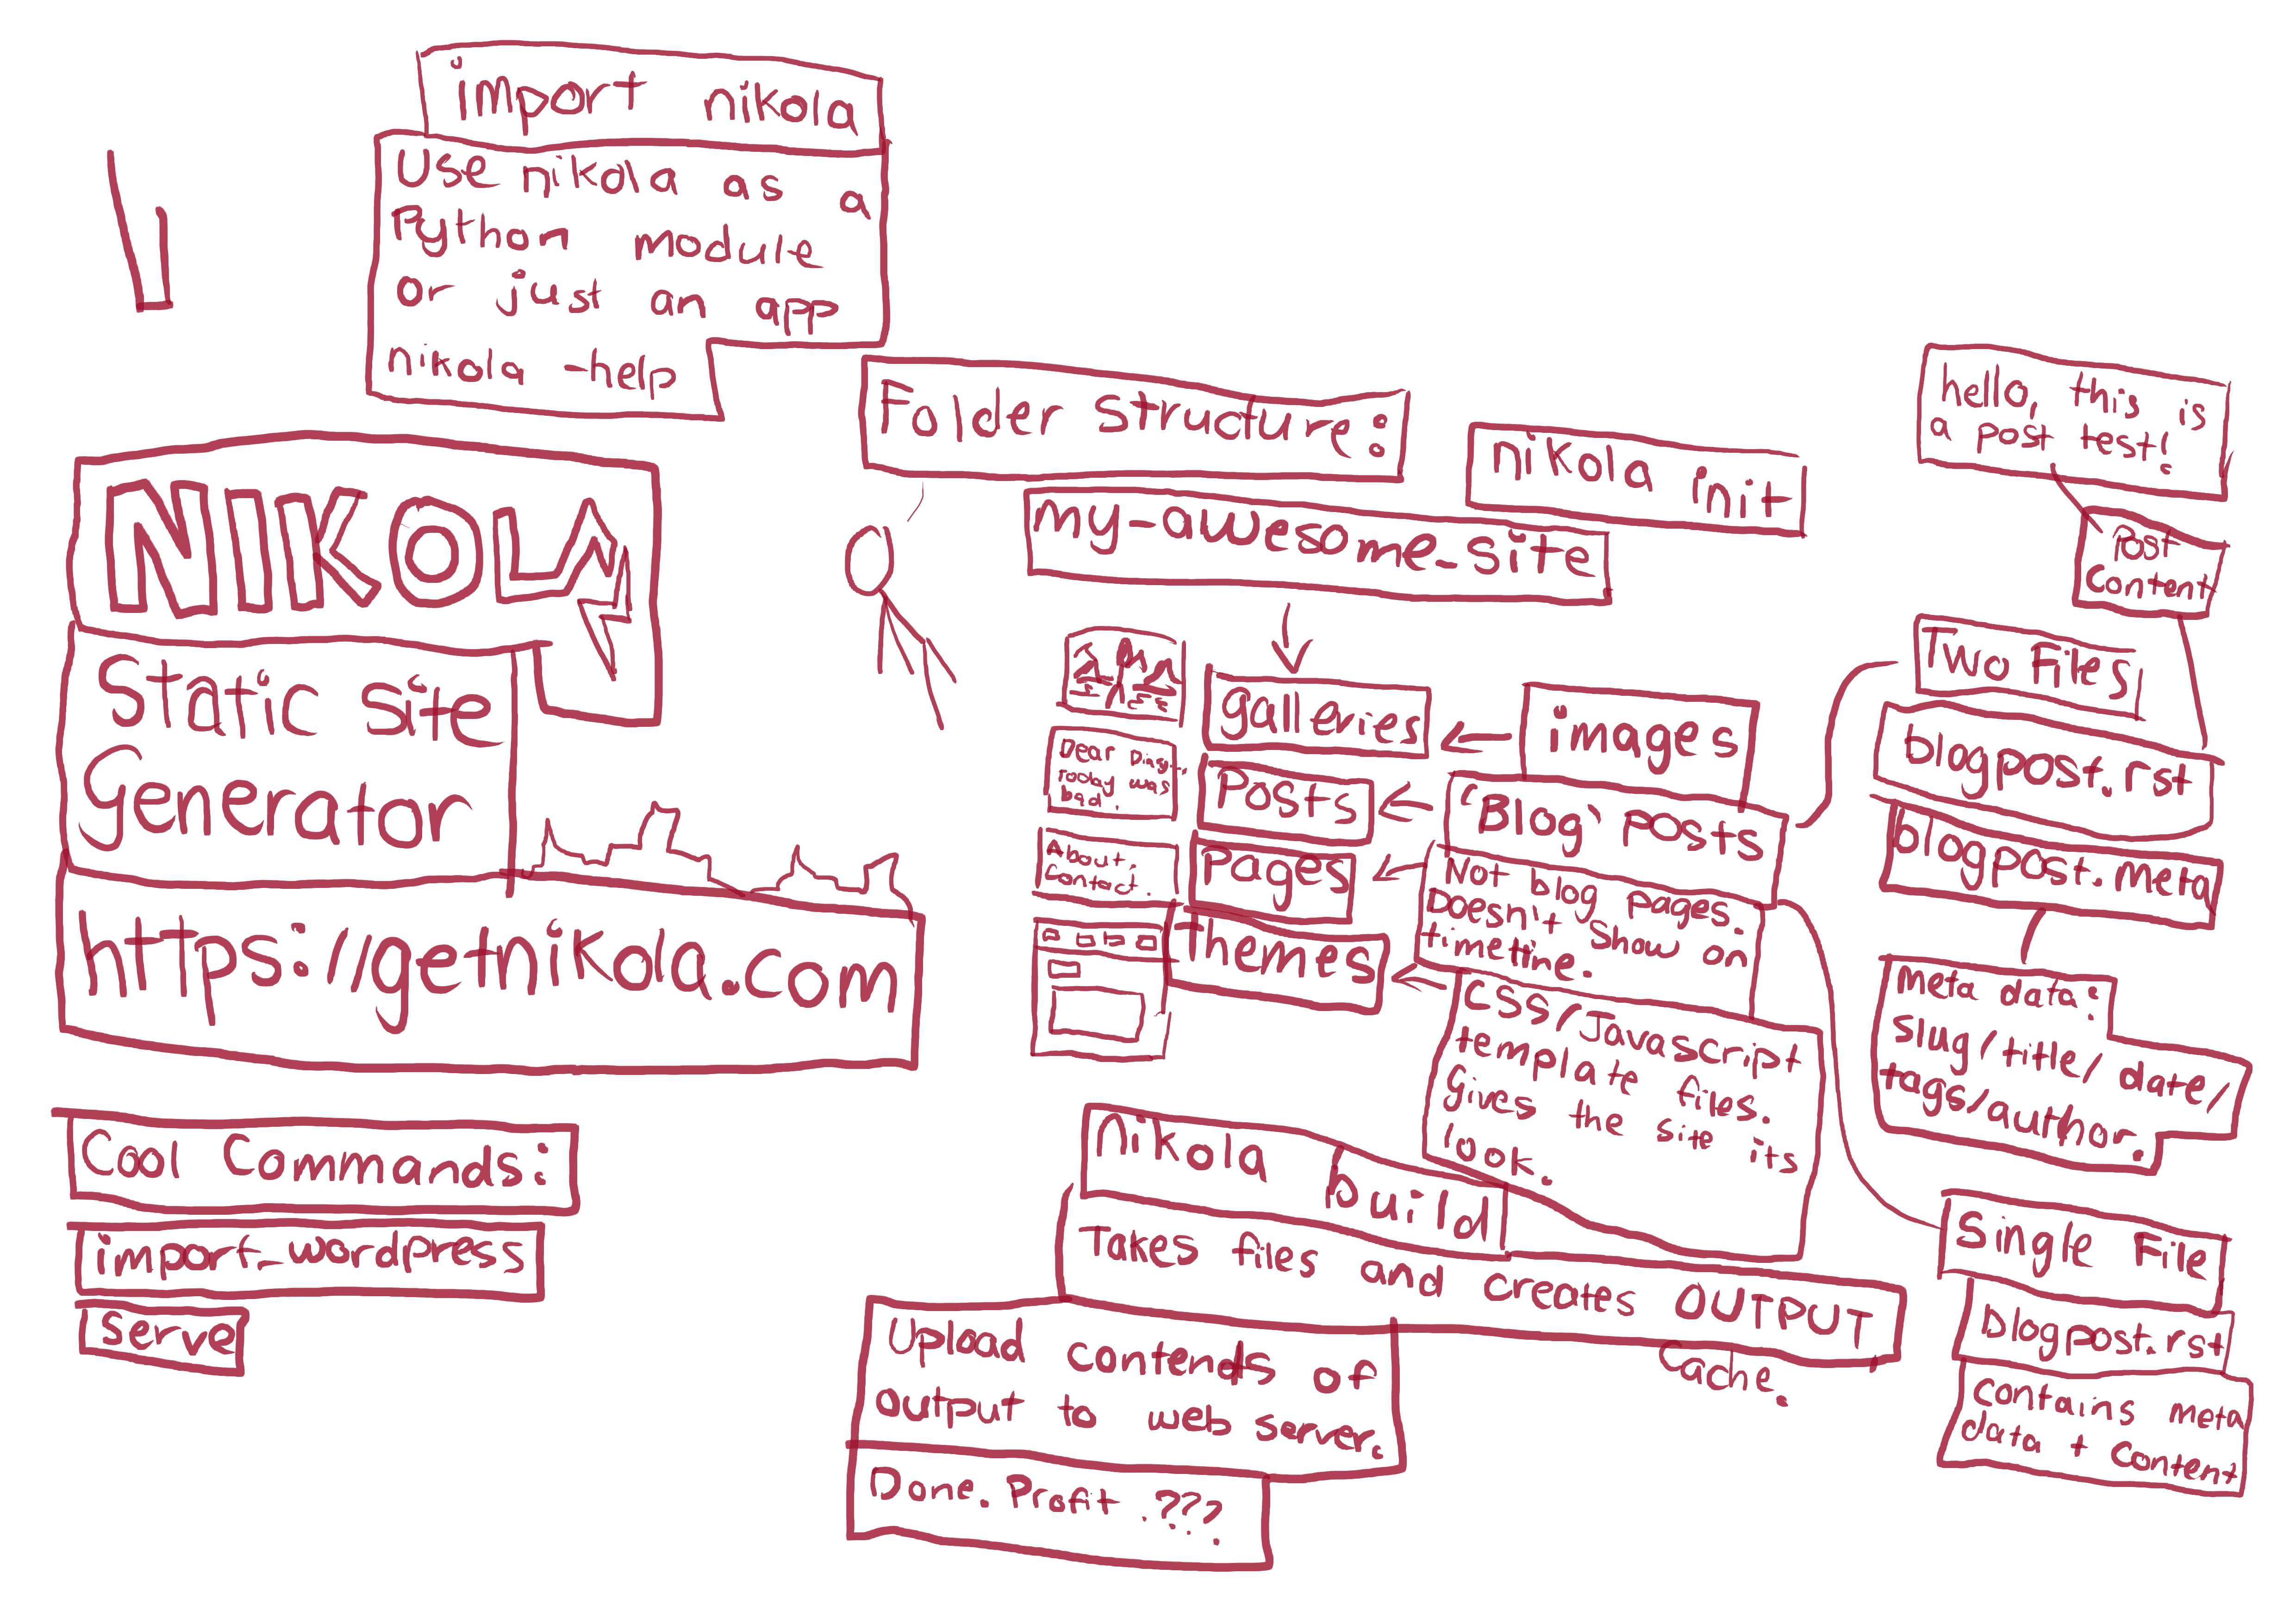 import nikola
Use nikola as a
Python module
or just an app
nikola -help
NIKOLA
Static site
Generator
https://getnikola.com
Cool Commands:
import_wordpress
serve
Folder Structure:
nikola init
my-awesome-site
galleries
images
Posts
'Blog' posts
Pages
Not blog pages.
Doesn't show on
timeline.
Themes
CSS/Javascript
template files.
Gives the site its
look.
Dear Diary,
Today was
bad.
About.
Contact.
Nikola build
Takes files and creates OUTPUT
Cache.
Upload contends of
output to web server.
Done. Profit .???
hello, this is
a post test!
Post
Content
Two Files
blogpost.rst
blogpost.meta
Meta data:
slug/title/date/
tags/author.
Single File
Blogpost.rst
contains meta
data + content